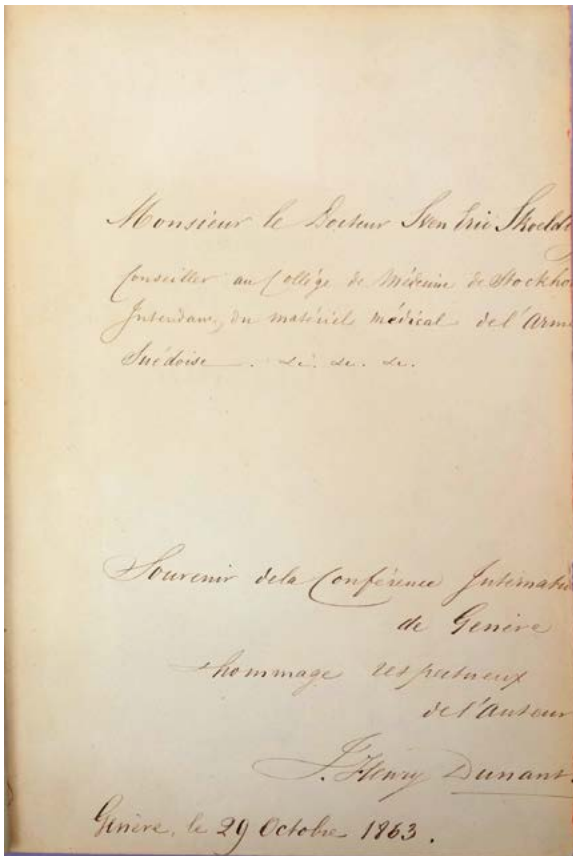 Monsieur le Docteur Sven Eric Skoeldb
Conseiller au Collège de Médecine de Stockho
Intendant du matériel médical de l'Arm
Suédoise. &c. &c. &c.
Souvenir de la Conférence Internatio
de Genève
hommage respectueux
de l'auteur
J. Henry Dunant.
Genève, le 29 Octobre 1863.